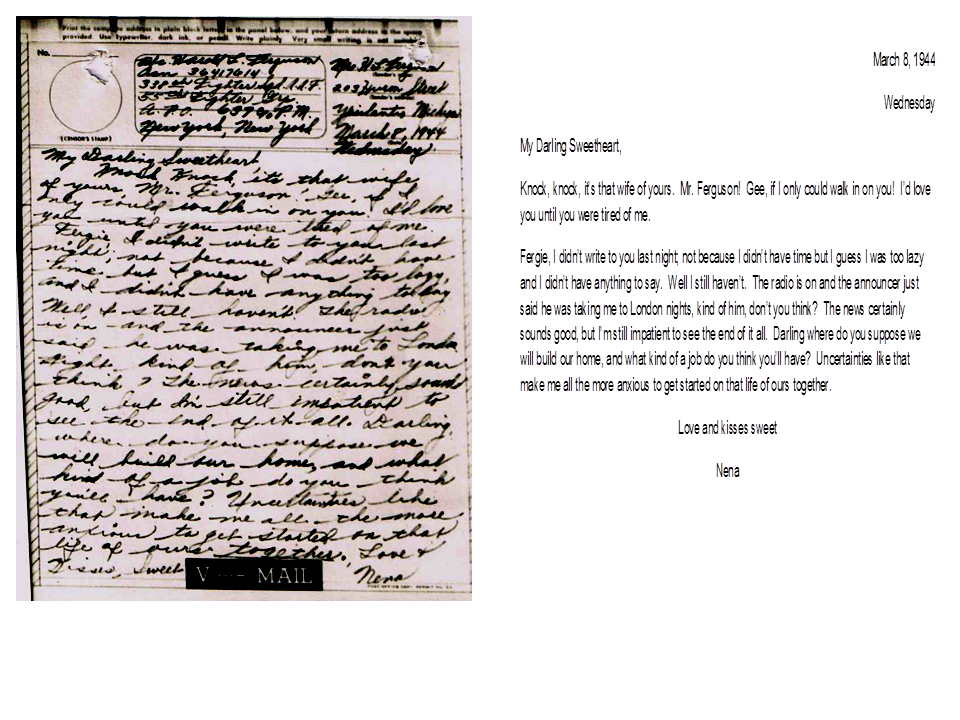 Print the complete address in plain block letters in the panel below, and your return address in the space
provided. Use typewriter, dark ink, or pencil. Write plainly. Very small writing is not suitable.
No.
(CENSOR'S STAMP)
Harold L. Ferguson
36417614
338th Fighter Sqd. A.A.F.
55th Fighter Gr.
A.P.O. 637 % P.M.
New York, New York
Mrs. H L Ferguson
(Sender's name)
203 Street
(Sender's address)
Ypsilanti, Michigan
March 8, 1944
Wednesday
My Darling Sweetheart
Knock Knock, its that wife
of yours, Mr. Ferguson. Gee, if I
only could walk in on you! I'd love
you until you were tired of me.
Fergie, I didn't write to you last
night; not because I didn't have
time but I guess I was too lazy
and I didn't have anything to say.
Well I still haven't. The radio
is on and the announcer just
said he was taking me to London
nights, kind of him, don't you
think? The news certainly sounds
good, but I'm still impatient to
see the end of it all. Darling,
where do you suppose we
will build our home, and what
kind of a job do you think
you'll have? Uncertainties like
that make me all the more
anxious to get started on that
life of ours together. Love &
Kisses, Sweet
Nena
V ··· — MAIL
March 8, 1944
Wednesday
My Darling Sweetheart,
Knock, knock, it's that wife of yours. Mr. Ferguson! Gee, if I only could walk in on you! I'd love
you until you were tired of me.
Fergie, I didn't write to you last night; not because I didn't have time but I guess I was too lazy
and I didn't have anything to say. Well I still haven't. The radio is on and the announcer just
said he was taking me to London nights, kind of him, don't you think? The news certainly
sounds good, but I'm still impatient to see the end of it all. Darling where do you suppose we
will build our home, and what kind of a job do you think you'll have? Uncertainties like that
make me all the more anxious to get started on that life of ours together.
Love and kisses sweet
Nena